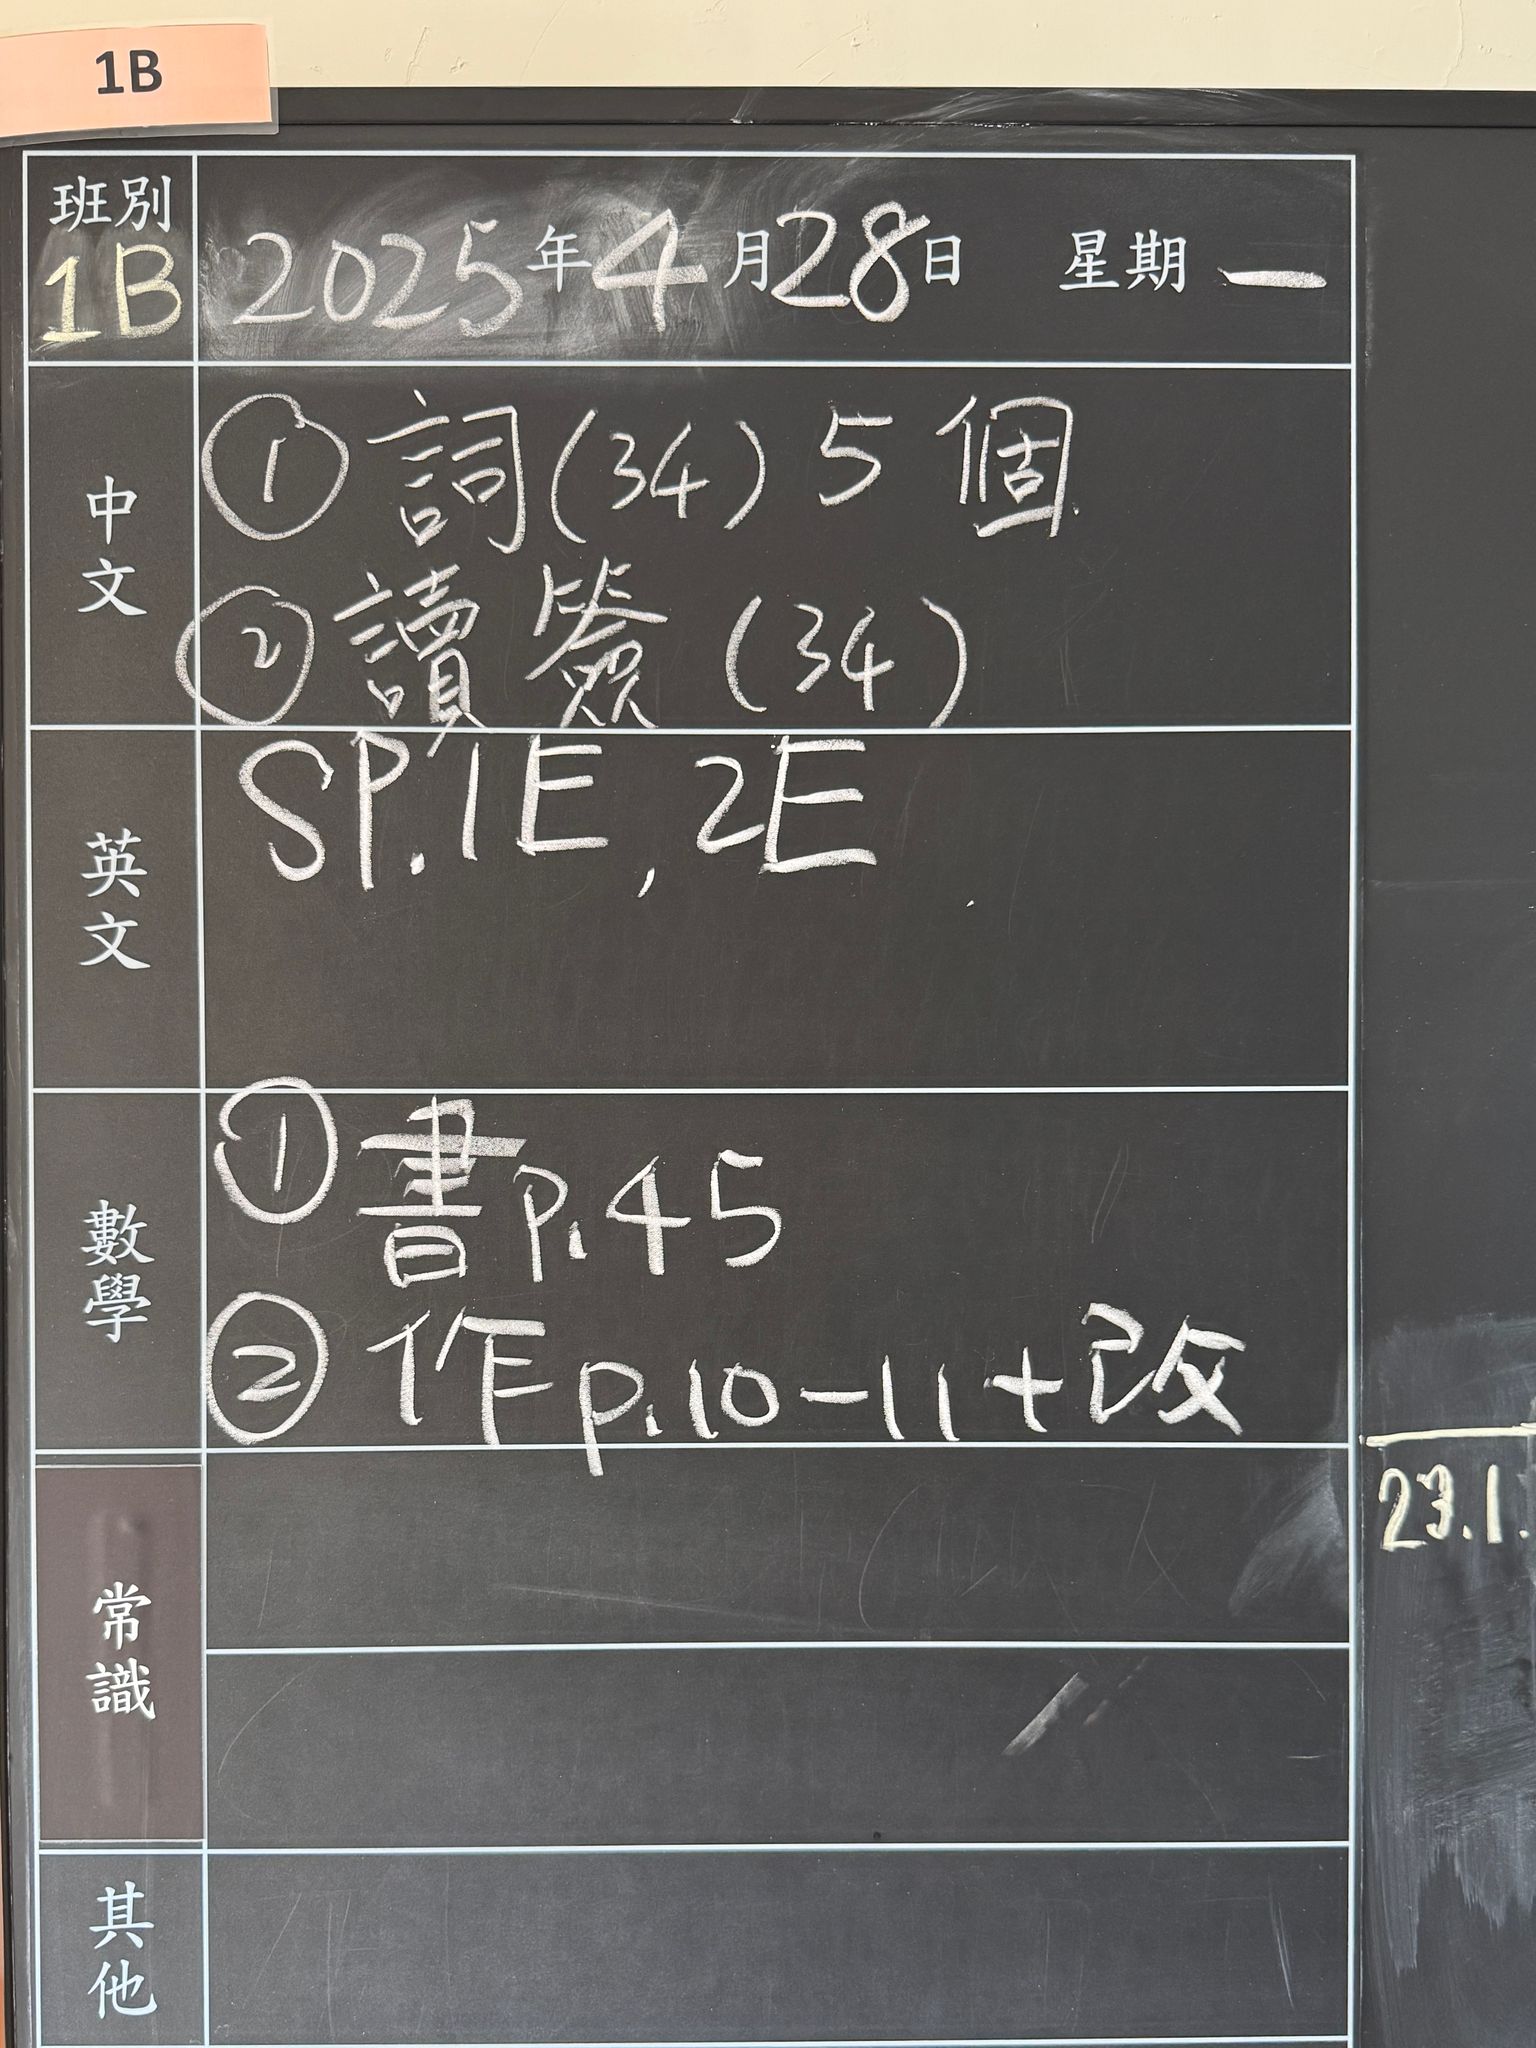 1B
班別 1B
2025年4月28日 星期一
中文
① 詞(34) 5個
② 讀簽(34)
英文
SP. 1E, 2E
數學
① 書p.45
② 作p.10-11+改
常識
23.1.
其他